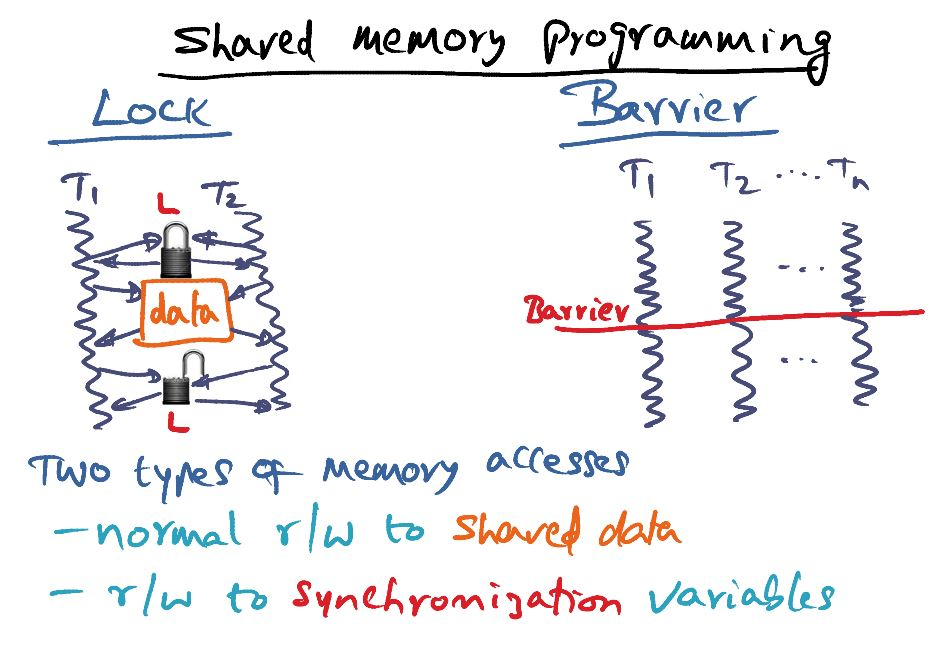 Shared memory Programming
Lock
Barrier
T1 L T2
T1 T2 .... Tn
...
data
Barrier
...
L
Two types of memory accesses
- normal r/w to shared data
- r/w to synchronization variables